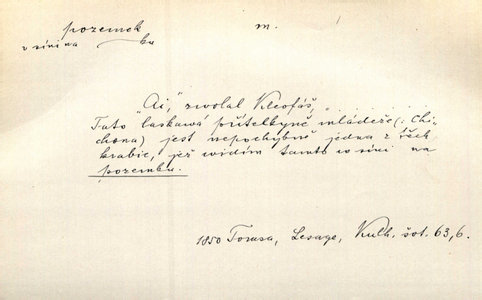 pozemek m.
v síni na ku
"Ai," zvolal Kleofáš, "
Tato laskavá přítelkyně mládeže (: Chi-
chona) jest nepochybně jedna z těch
hrabic, jež vidím tamto v síni na
pozemku.
1850 Torusa, Lesage, Kulh. šot. 63, 6.